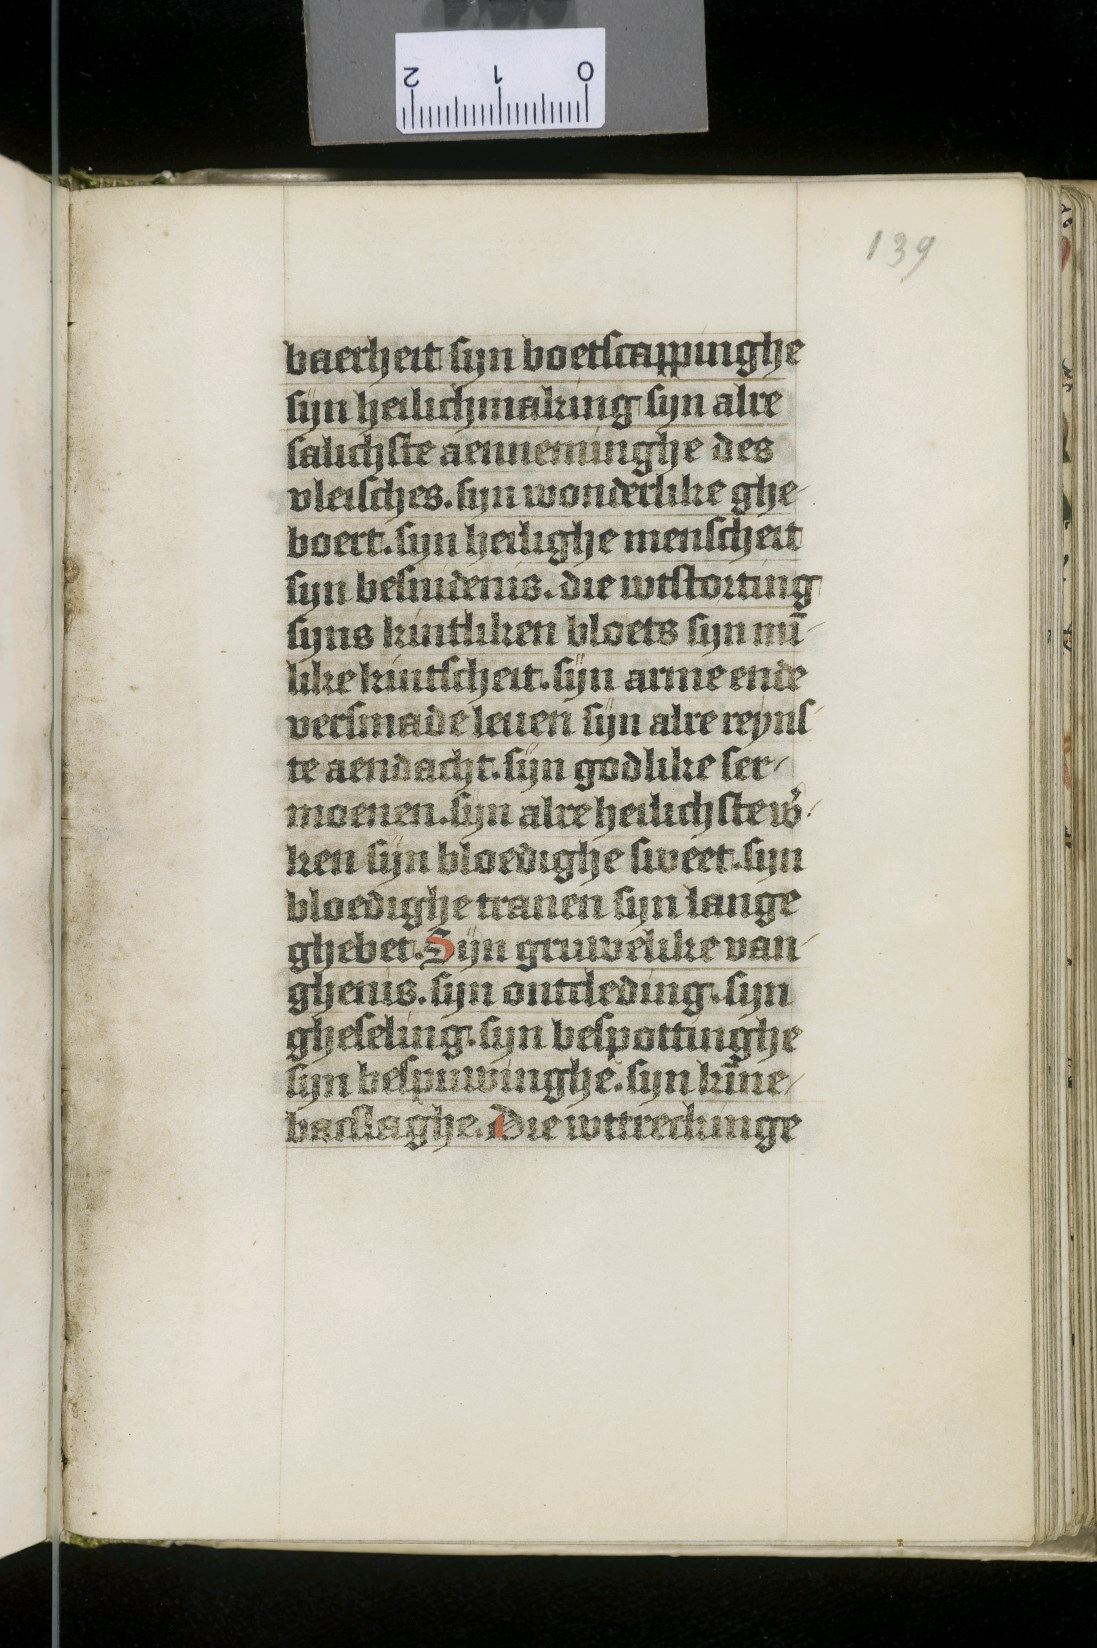 2 1 0
139
baerheit syn boetscappinghe
syn heilichmaking syn alre
salichste aenneminghe des
vleisches. syn wonderlike ghe-
boert. syn heilighe menscheit
syn besnidenis. die wtstorting
syns kintliken bloets syn mī-
like kintscheit. sijn arme ende
versmade leuen sijn alre reyns-
te aendacht. sijn godlike ser-
moenen. syn alre heilichste w̉-
ken sijn bloedighe sweet. syn
bloedighe tranen syn lange
ghebet. Sijn gruwelike van-
ghenis. sijn ontcleding. syn
gheseling. syn bespottinghe
syn bespuwinghe. syn kīne-
bacslaghe. Die wttreckinge